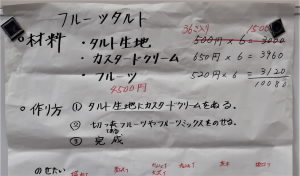 フルーツタルト
36こ入り 1500
○材料 ・タルト生地 500円×6=3000
・カスタードクリーム 650円×6=3960
・フルーツ 520円×6=3120
4500円 10080
○作り方 ① タルト生地にカスタードクリームをぬる。
② 切った フルーツやフルーツミックスをのせる。
③ 完成
のせたい